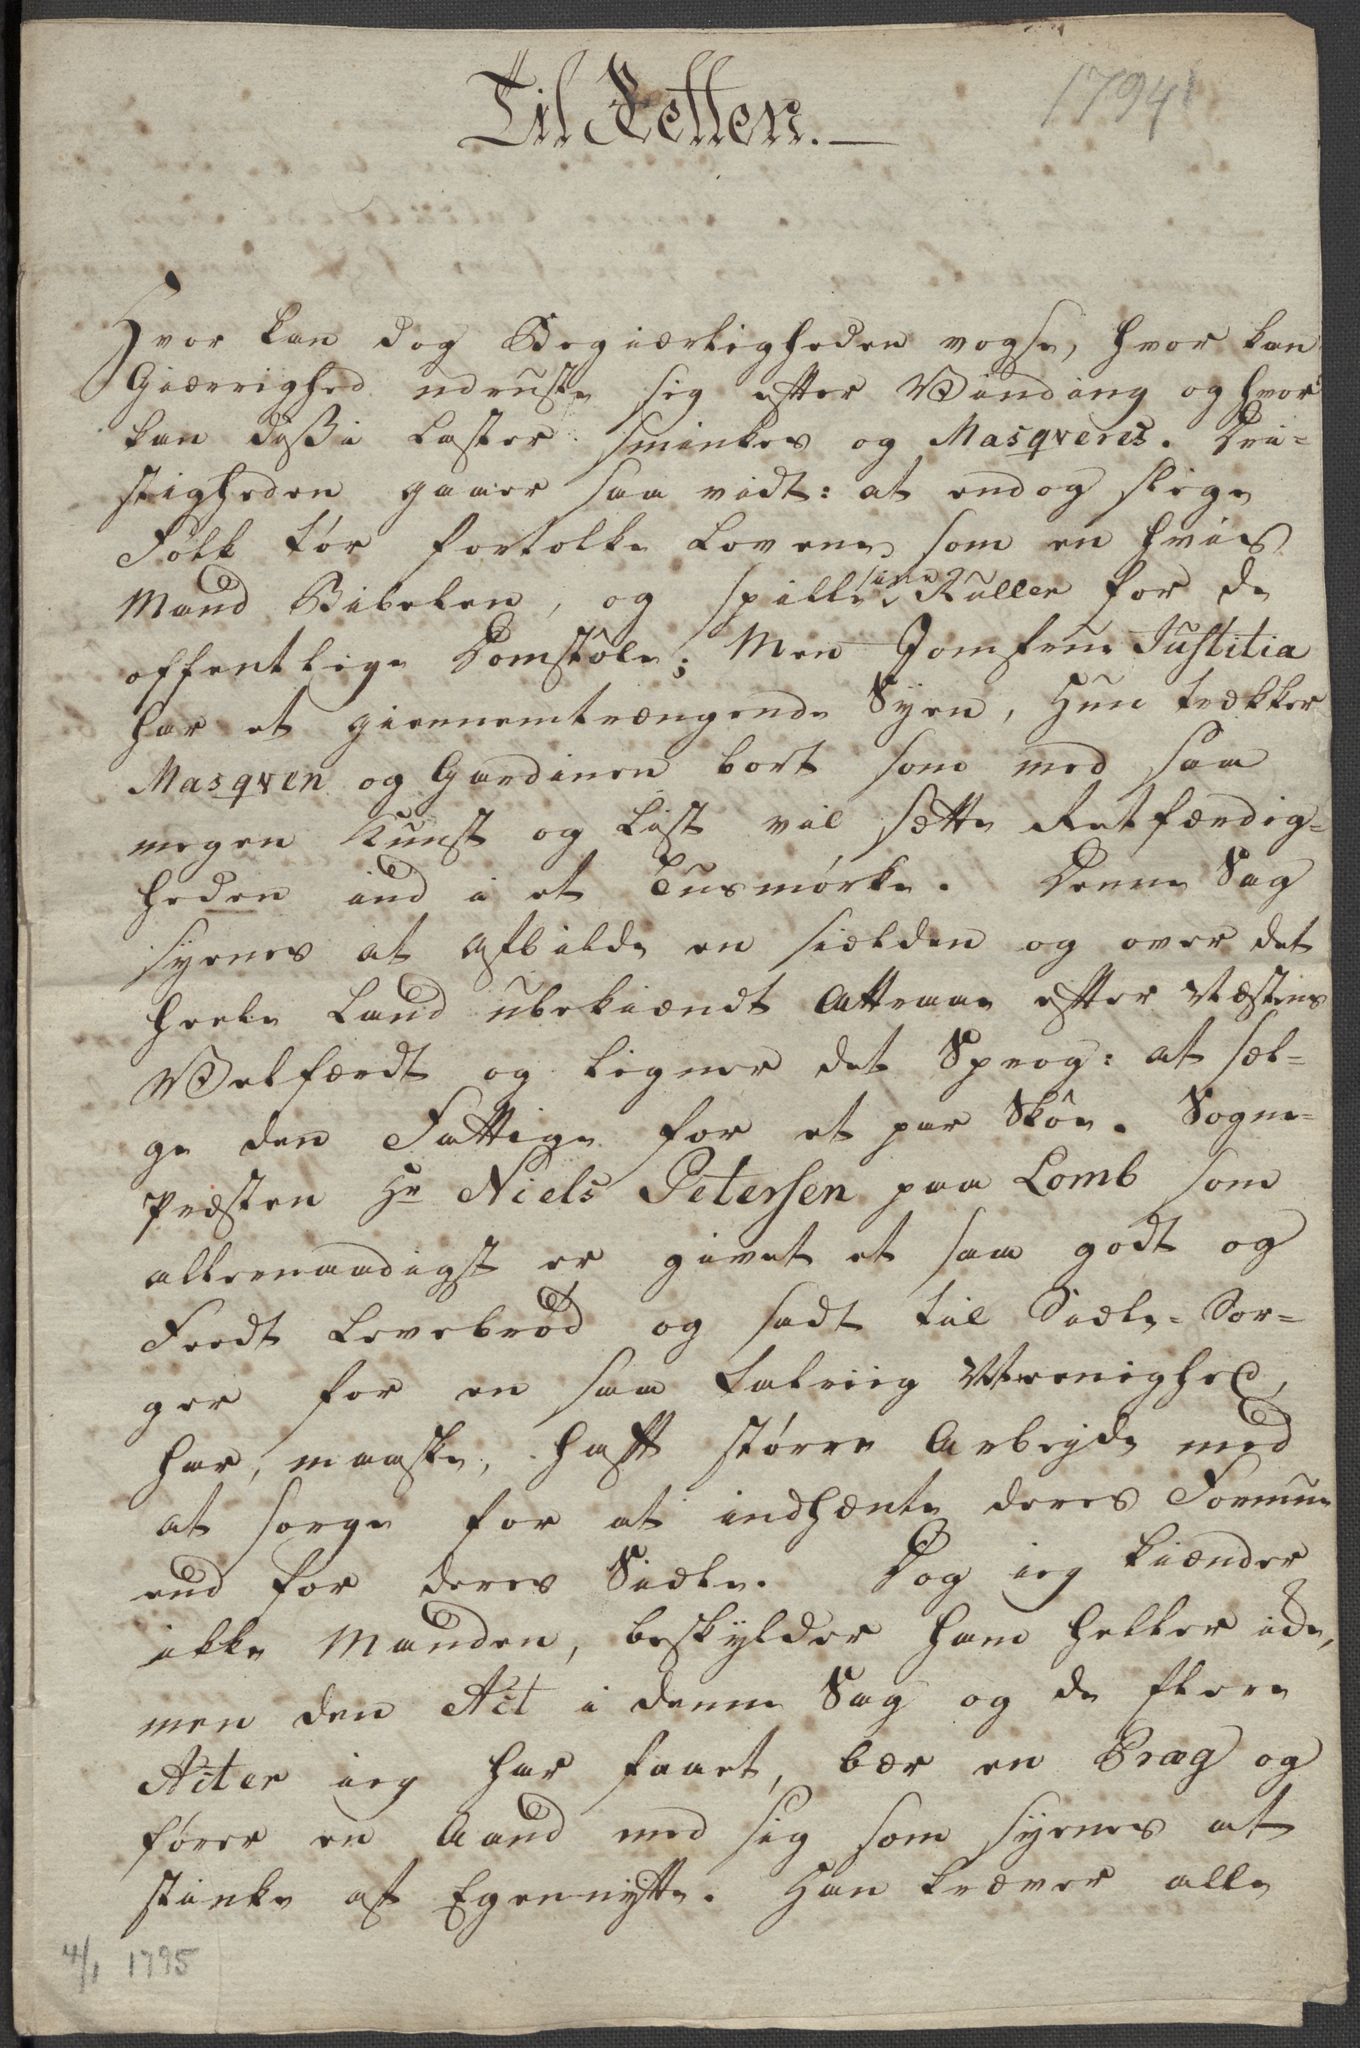 Til Retten.
1794
Hvor kan dog Begiærligheden voxe, hvor kan
Giærrighed udruste sig efter Vinding og hvor
kan disse Laster sminkes og Masqveres. Dri-
stigheden gaaer saa vidt: at endog slige
Folk tør fortolke Lovene som en hviis
Mand Bibelen, og spille sine Ruller for de
offentlige Domstole; Men Jomfrue Justitia
har et giennemtrængende Syen, Hun trækker
Masqven og Gardinen bort som med saa
megen Kunst og List vil sætte Retfærdig-
heden ind i et Tusmørke. Denne Sag
synes at afbilde en sielden og over det
heele Land ubekiændt Attraae efter Næstens
Velfærdt og ligner det Sprog: at sæl-
ge den Fattige for et par Skoe. Sogne-
Præsten Hr Niels Petersen paa Lomb som
allernaadigst er givet et saa godt og
Feedt Levebrød og sadt til Siæle-Sør-
ger for en saa talriig Meenighed,
har, maaske, haft større Arbeyde med
at sørge for at indhænte deres Formue
end for deres Siæle. Dog ieg kiænder
ikke Manden, beskylder ham heller ide,
men den Act i denne Sag og de flere
Acter ieg har faaet, bær en Præg og
fører en Aand med sig som synes at
stinke af Egennytte. Han kræver alle
4/1 1795